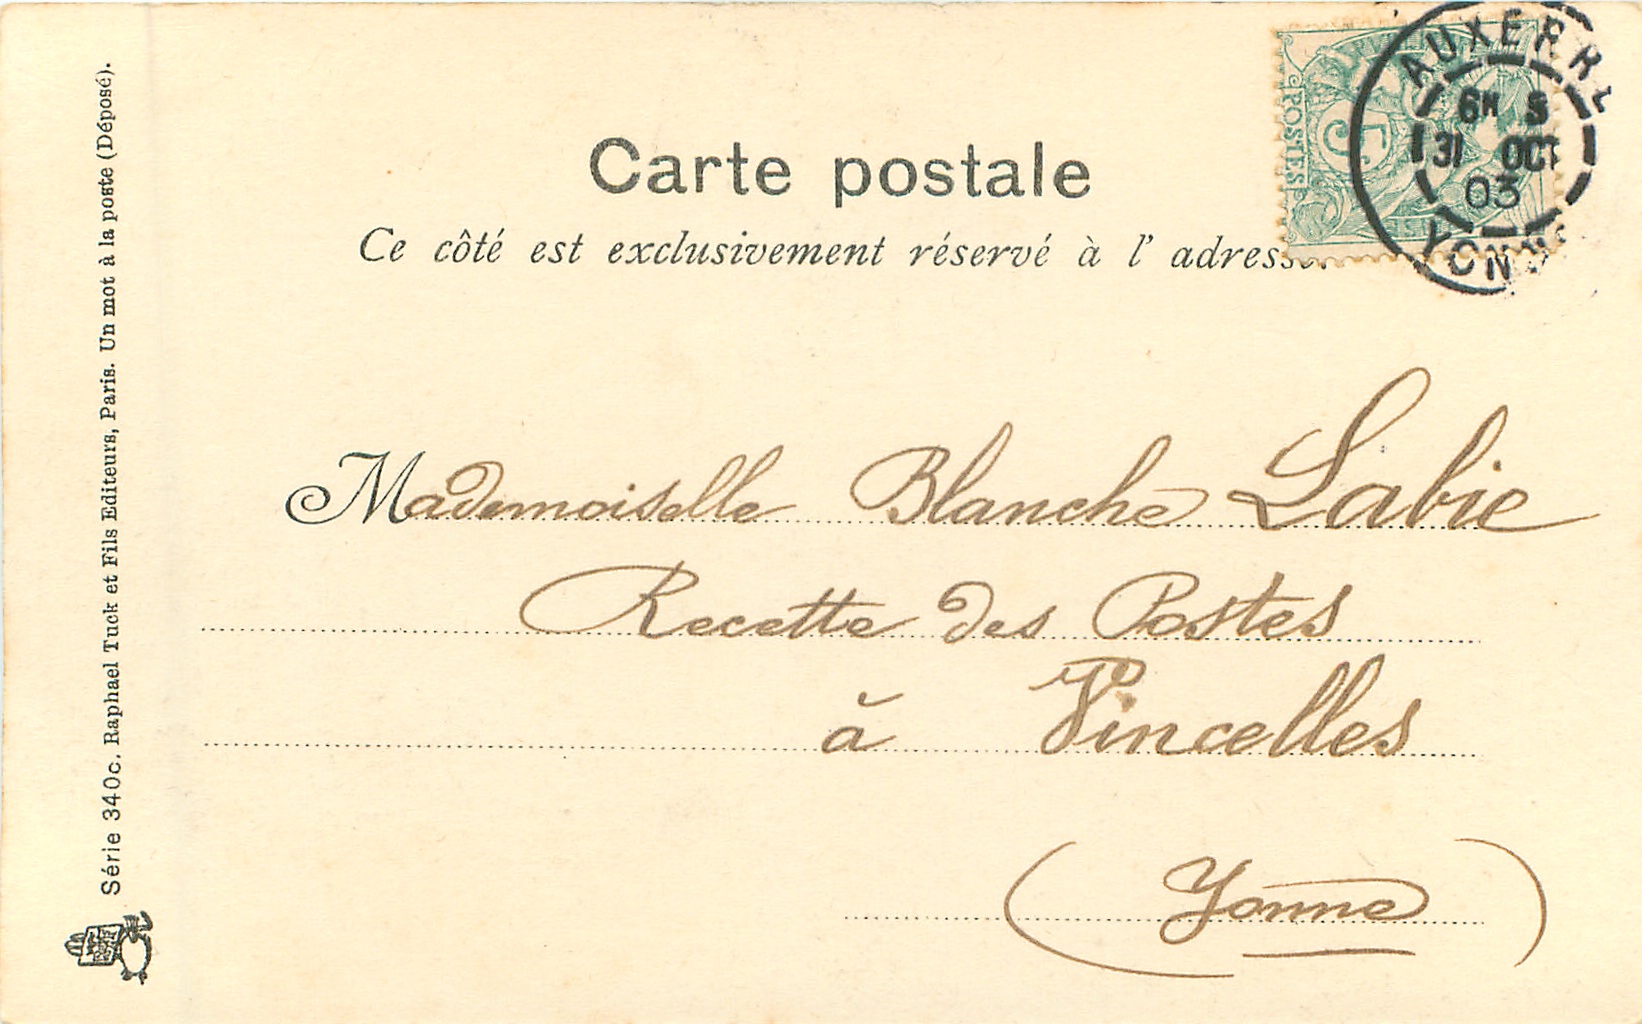 Carte postale
Ce côté est exclusivement réservé à l' adresse.
POSTES
5
AUXERRE
6M S
31 OCT
03
YONNE
Mademoiselle Blanche Labie
Recette des Postes
à Vincelles
(Yonne)
Série 340c. Raphael Tuck et Fils Editeurs, Paris. Un mot à la poste (Déposé).